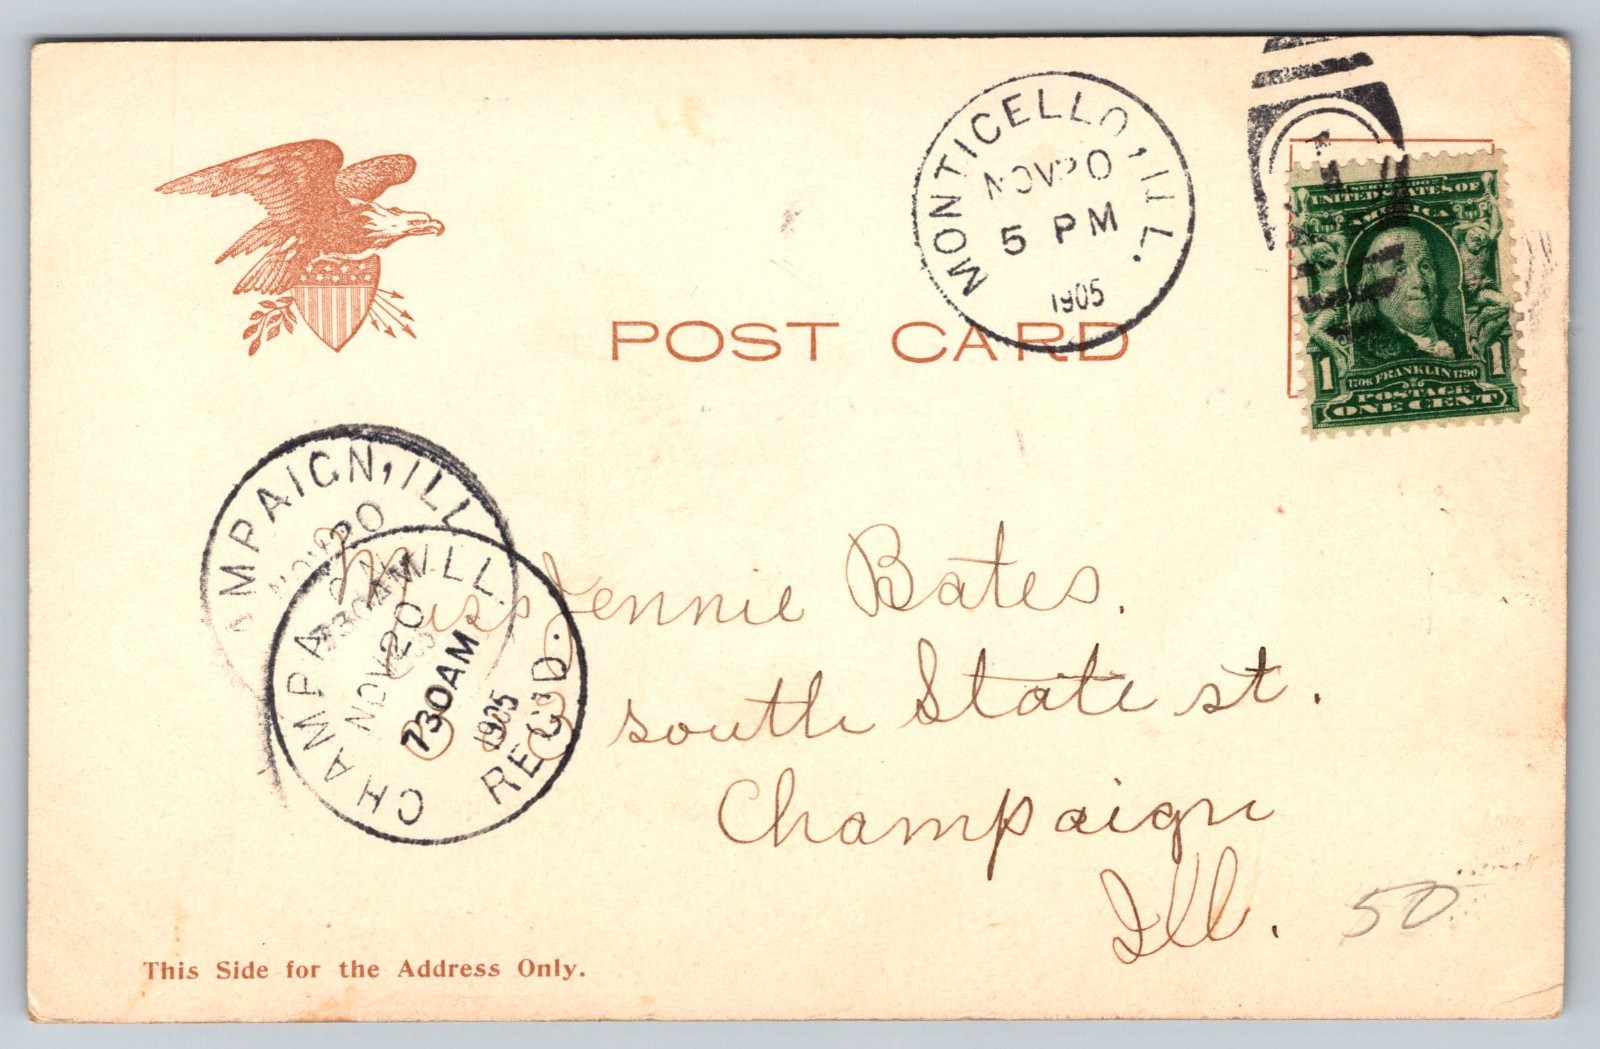 MONTICELLO, ILL.
NOV 20
5 PM
1905
SERIES 1902
UNITED STATES OF
AMERICA
1 1706 FRANKLIN 1790 1
POSTAGE
ONE CENT
POST CARD
AMPAIGN, ILL
NOV 20
730AM
CHAMPAIGN, ILL.
NOV 20
730AM
1905
REC'D.
Miss Jennie Bates.
808 south State st.
Champaign
Ill.
50
This Side for the Address Only.